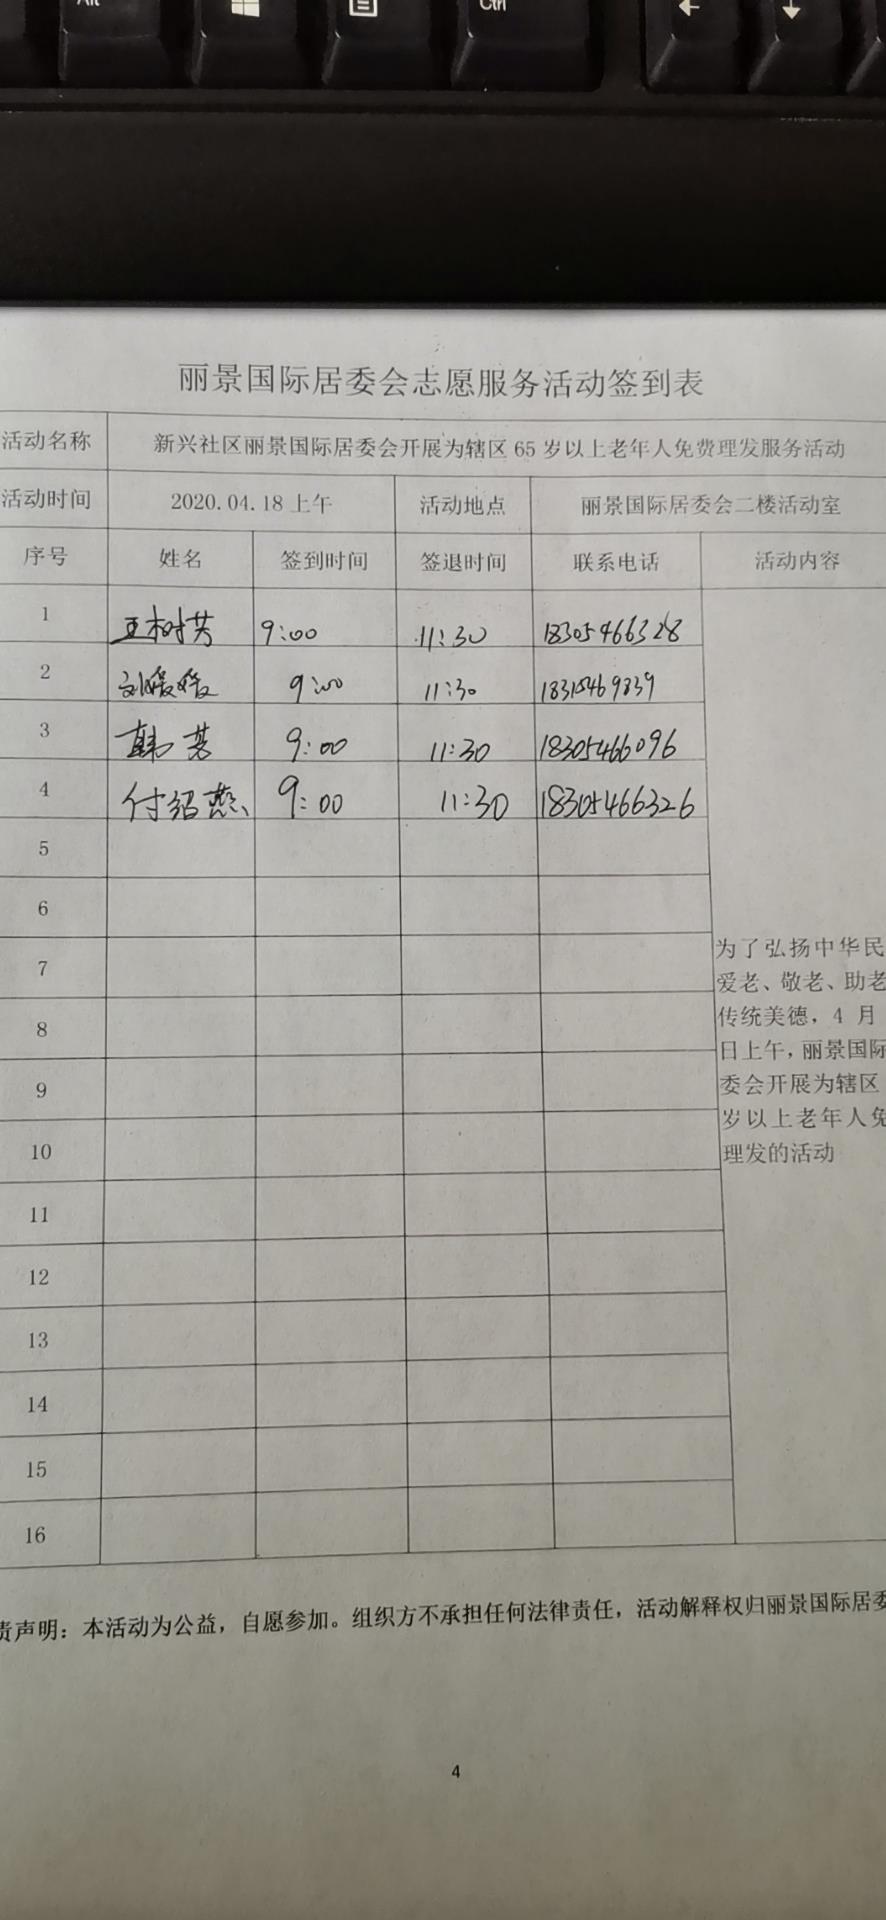 Alt
Ctrl
丽景国际居委会志愿服务活动签到表
活动名称 新兴社区丽景国际居委会开展为辖区 65 岁以上老年人免费理发服务活动
活动时间 2020.04.18 上午 活动地点 丽景国际居委会二楼活动室
序号 姓名 签到时间 签退时间 联系电话 活动内容
1 王树芳 9:00 11:30 18305466328
2 刘媛媛 9:00 11:30 18315469839
3 韩芳 9:00 11:30 18305466096
4 付绍燕 9:00 11:30 18305466326
5
6
7
8
9
10
11
12
13
14
15
16
为了弘扬中华民
爱老、敬老、助老
传统美德，4 月
日上午，丽景国际
委会开展为辖区
岁以上老年人免
理发的活动
责声明：本活动为公益，自愿参加。组织方不承担任何法律责任，活动解释权归丽景国际居委
4